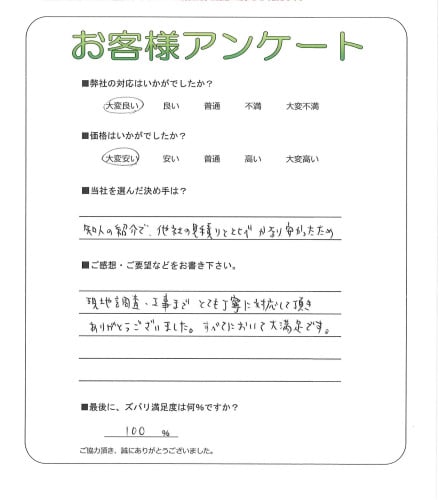 お客様アンケート
■弊社の対応はいかがでしたか?
大変良い 良い 普通 不満 大変不満
■価格はいかがでしたか?
大変安い 安い 普通 高い 大変高い
■当社を選んだ決め手は?
知人の紹介で、他社の見積りとくらべかなり安かったため
■ご感想・ご要望などをお書き下さい。
現地調査・工事まで とても丁寧に対応して頂き
ありがとうございました。すべてにおいて大満足です。
■最後に、ズバリ満足度は何%ですか?
100 %
ご協力頂き、誠にありがとうございました。